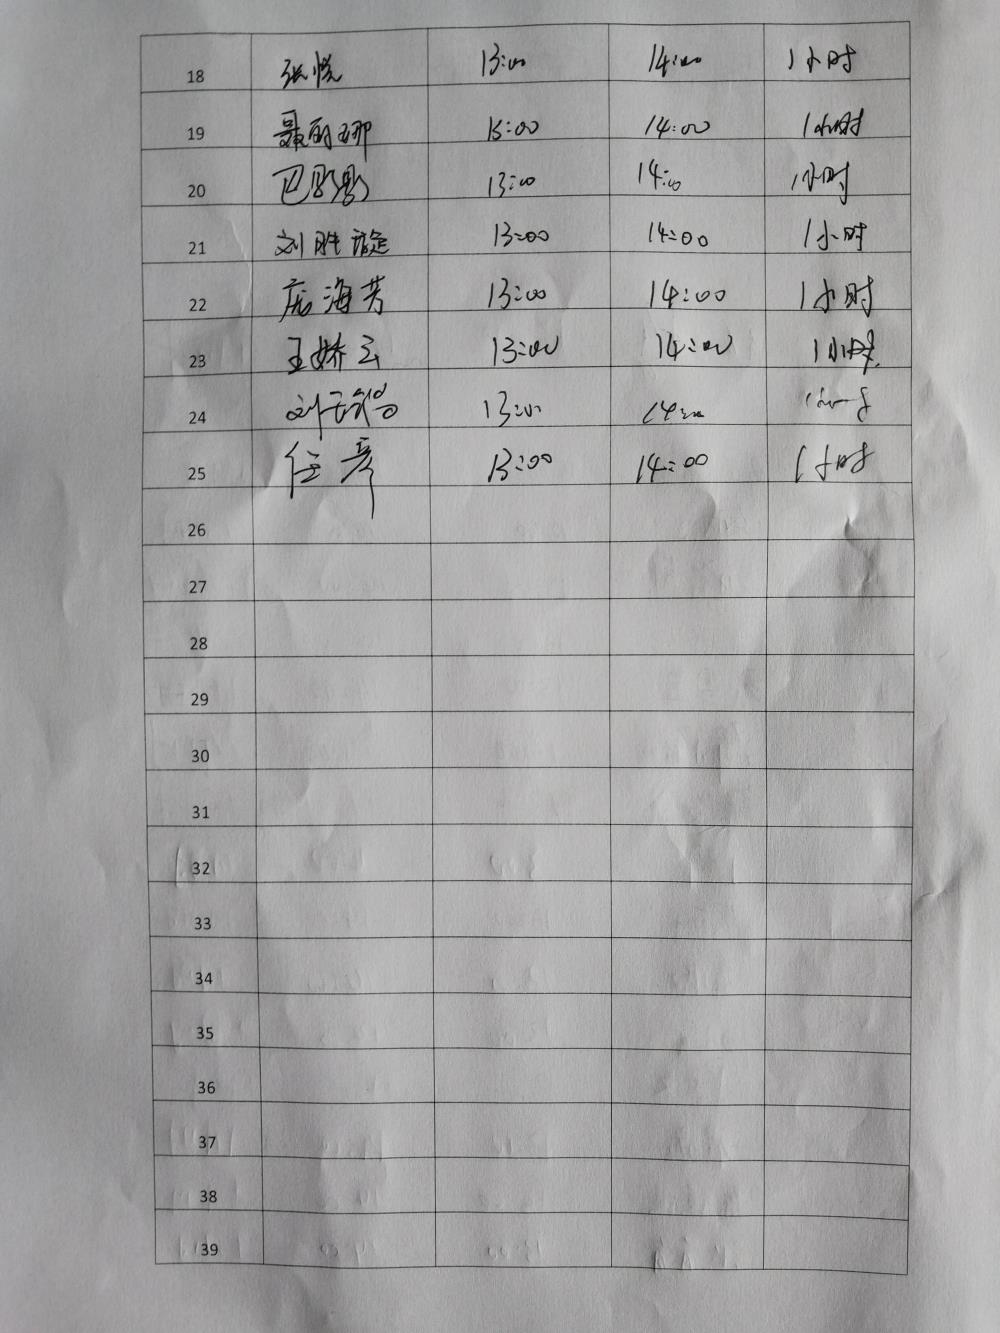 18 张悦 13:00 14:00 1小时
19 聂丽娜 13:00 14:00 1小时
20 巴影影 13:00 14:00 1小时
21 刘胜 13:00 14:00 1小时
22 庞海芳 13:00 14:00 1小时
23 王娇云 13:00 14:00 1小时
24 刘 13:00 14:00
25 任彦 13:00 14:00 1小时
26
27
28
29
30
31
32
33
34
35
36
37
38
39